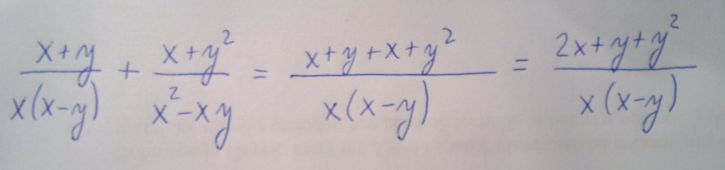 \frac{x+y}{x(x-y)} + \frac{x+y^2}{x^2-xy} = \frac{x+y+x+y^2}{x(x-y)} = \frac{2x+y+y^2}{x(x-y)}